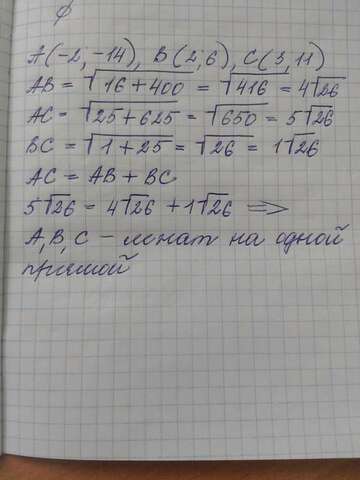 φ
A(-2, -14), B(2; 6), C(3, 11)
AB = √16+400 = √416 = 4√26
AC = √25+625 = √650 = 5√26
BC = √1+25 = √26 = 1√26
AC = AB + BC
5√26 = 4√26 + 1√26 ⟹
A, B, C - лежат на одной
прямой